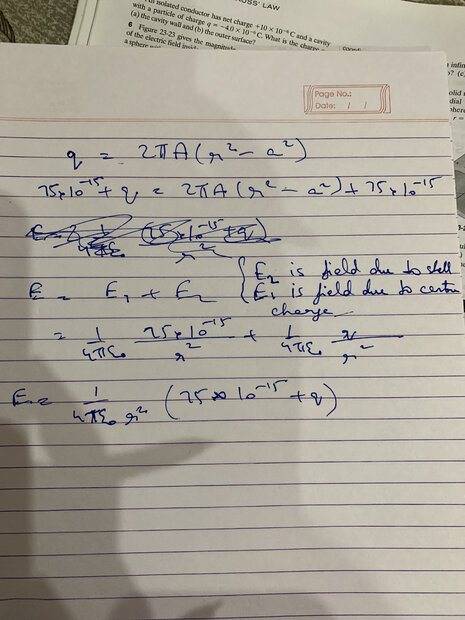 OSS' LAW
isolated conductor has net charge +10 × 10⁻⁶ C and a cavity
with a particle of charge q = −4.0 × 10⁻⁶ C. What is the charge
(a) the cavity wall and (b) the outer surface?
6 Figure 23-23 gives the magnitude
of the electric field
a sphere
Page No.:
Date: / /
q = 2πA(r² − a²)
75×10⁻¹⁵ + q = 2πA(r² − a²) + 75×10⁻¹⁵
E = E₁ + E₂
E₂ is field due to shell
E₁ is field due to
charge
= 1/4πε₀ 75×10⁻¹⁵/r² + 1/4πε₀ /r²
E = 1/4πε₀r² (75×10⁻¹⁵ + q)